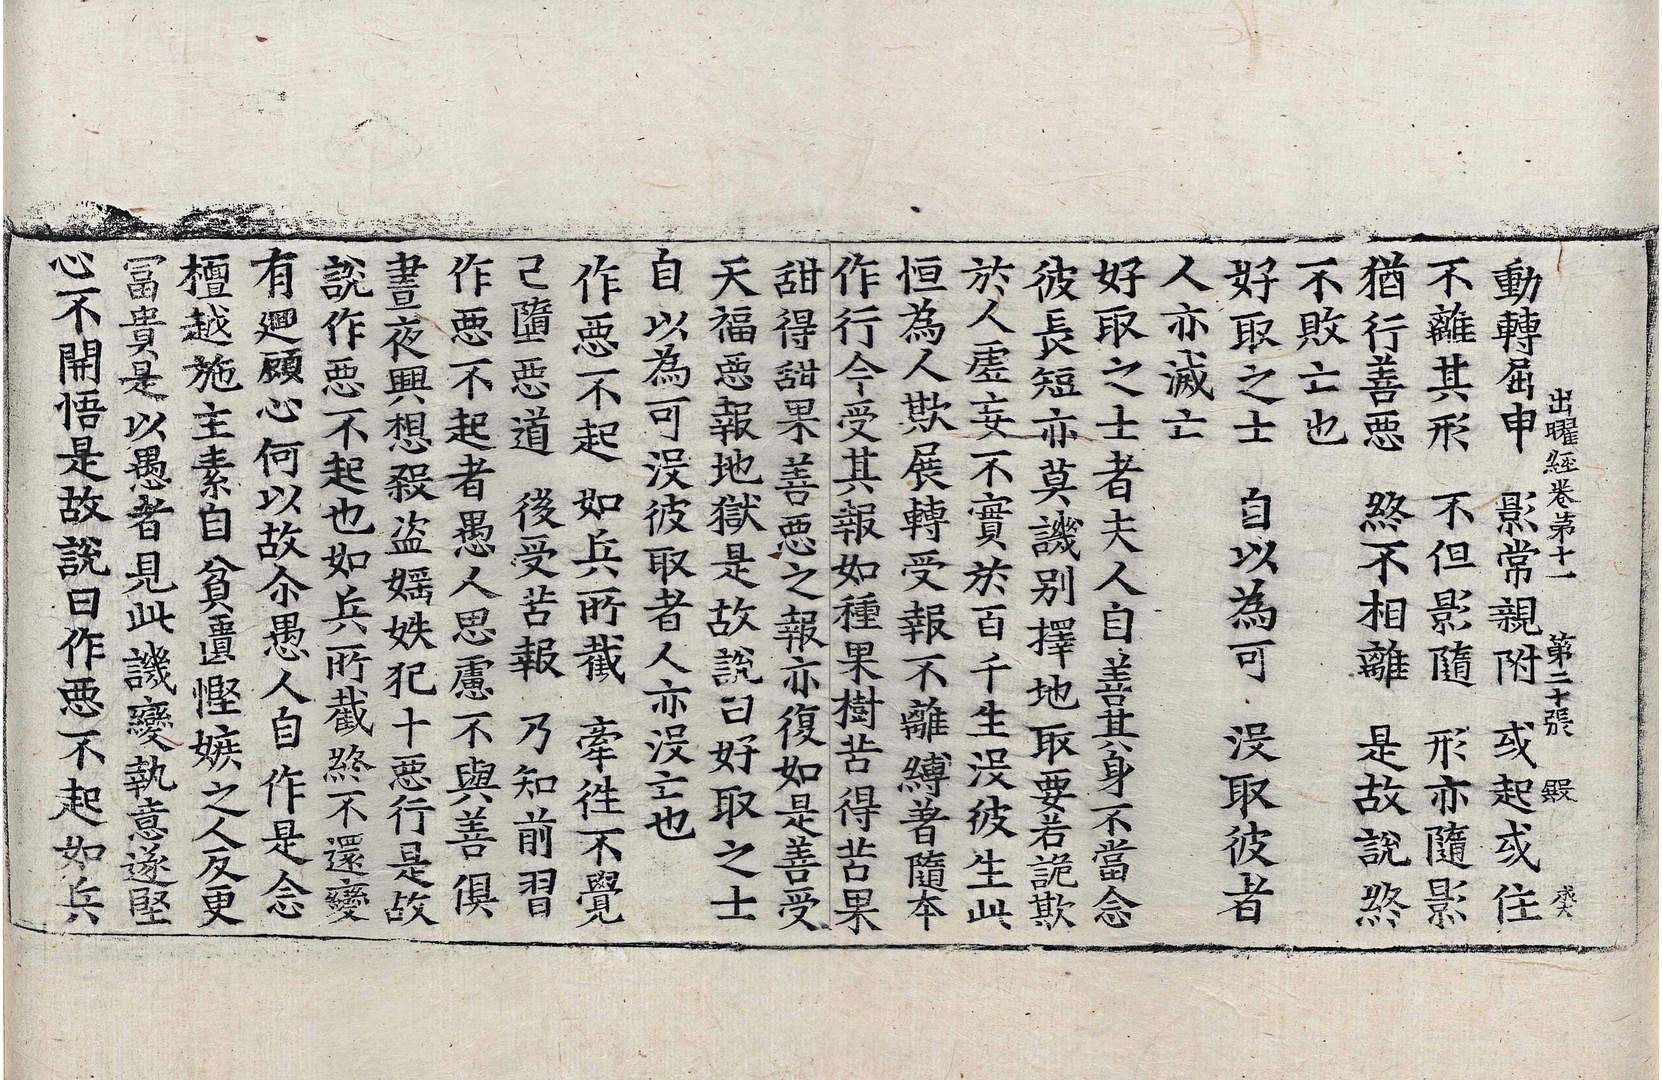 出曜經卷第十一　第二十張　殿
動轉屈申　影常親附　或起或住
不離其形　不但影隨　形亦隨影
猶行善惡　終不相離　是故說終
不敗亡也
好取之士　自以為可　沒取彼者
人亦滅亡
好取之士者夫人自善其身不當念
彼長短亦莫譏別擇地取要若詭欺
於人虛妄不實於百千生沒彼生此
恒為人欺展轉受報不離縛著隨本
作行今受其報如種果樹苦得苦果
甜得甜果善惡之報亦復如是善受
天福惡報地獄是故說曰好取之士
自以為可沒彼取者人亦沒亡也
作惡不起　如兵所截　牽往不覺
己墮惡道　後受苦報　乃知前習
作惡不起者愚人思慮不與善俱
晝夜興想殺盜婬妷犯十惡行是故
說作惡不起也如兵所截終不還變
有廻顧心何以故尒愚人自作是念
檀越施主素自貧匱慳嫉之人反更
冨貴是以愚者見此譏變執意遂堅
心不開悟是故說曰作惡不起如兵